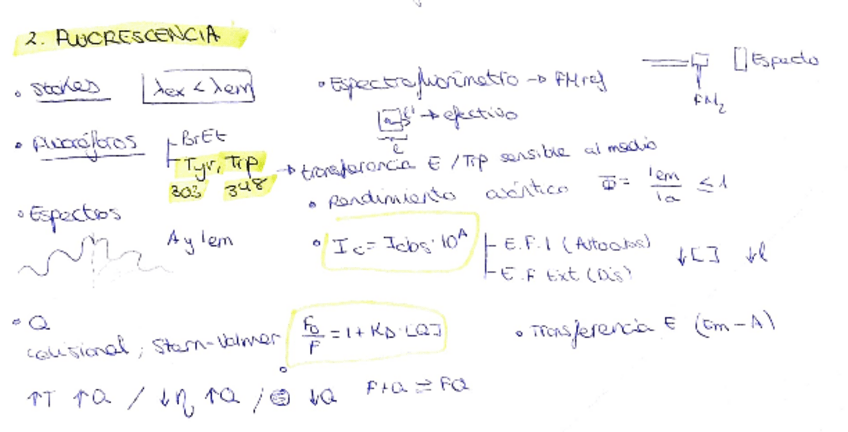 2. FLUORESCENCIA
• Stokes λex < λem
• Espectrofluorímetro → FM ref
FM2
Espacio
l' → efectivo
l
• Fluoróforos
BrEt
Tyr, Trp → transferencia E / Trp sensible al medio
303 348
• Rendimiento cuántico Φ = Iem / Ia ≤ 1
• Espectros
A y Iem
• Ic = Iobs · 10^A
E.F. I (Autoabs)
E.F Ext (Dis)
↓[ ] ↓l
• Q
colisional, Stern-Volmer F0/F = 1 + KD · [Q]
• Transferencia E (Em - A)
↑T ↑Q / ↓η ↑Q / ↓Q F+Q ⇌ FQ